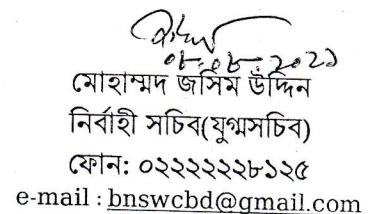 ০৮.০৮.২০২১
মোহাম্মদ জসিম উদ্দিন
নির্বাহী সচিব(যুগ্মসচিব)
ফোন: ০২২২২২২৮১২৫
e-mail : bnswcbd@gmail.com